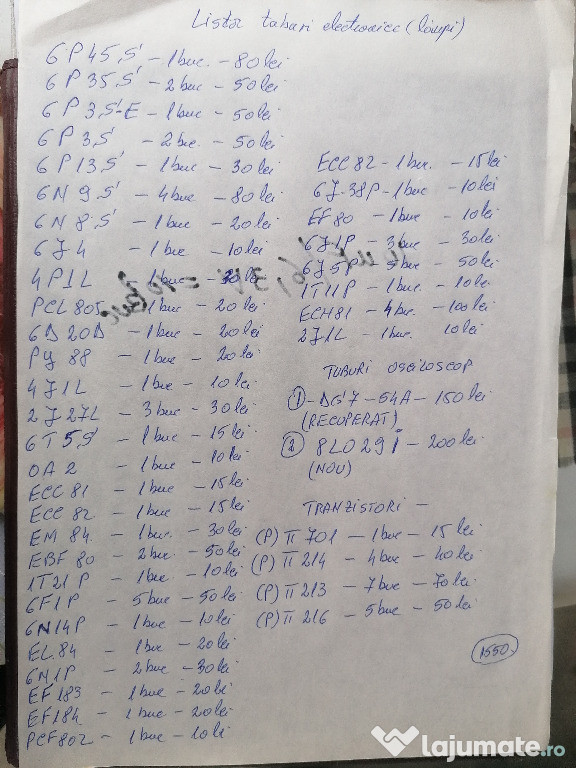 Lista tuburi electronice (lămpi)
6P45S - 1buc. - 80lei
6P35S - 2buc - 50lei
6P3S-E - 1buc - 50lei
6P3S - 2buc - 50lei
6P13S - 1buc - 30lei
6N9S - 4buc - 80lei
6N8S - 1buc - 20lei
6J4 - 1buc - 10lei
4P1L - 1buc
PCL805 - 1buc - 20lei
6D20D - 1buc - 20lei
PY88 - 1buc - 20lei
4J1L - 1buc - 10lei
2J27L - 3buc - 30lei
6T5S - 1buc - 15lei
OA2 - 1buc - 10lei
ECC81 - 1buc - 15lei
ECC82 - 1buc - 15lei
EM84 - 1buc. - 30lei
EBF80 - 2buc - 50lei
1T21P - 1buc - 10lei
6F1P - 5buc - 50lei
6N14P - 1buc - 10lei
EL84 - 1buc - 20lei
6N1P - 2buc - 30lei
EF183 - 1buc - 20lei
EF184 - 1buc - 20lei
PCF802 - 1buc - 10lei
ECC82 - 1buc. - 15lei
6J-38P - 1buc - 10lei
EF80 - 1buc - 10lei
6J1P - 3buc - 30lei
6J5P - 5buc - 50lei
1T11P - 1buc - 10lei
ECH81 - 4buc - 100lei
2J1L - 1buc. 10lei
TUBURI OSCILOSCOP
1 - DG7-54A - 150lei
(RECUPERAT)
2 8LO29I - 200lei
(NOU)
TRANZISTORI -
(P)П701 - 1buc - 15lei
(P)П214 - 4buc - 40lei
(P)П213 - 7buc - 70lei
(P)П216 - 5buc - 50lei
1550
lajumate.ro